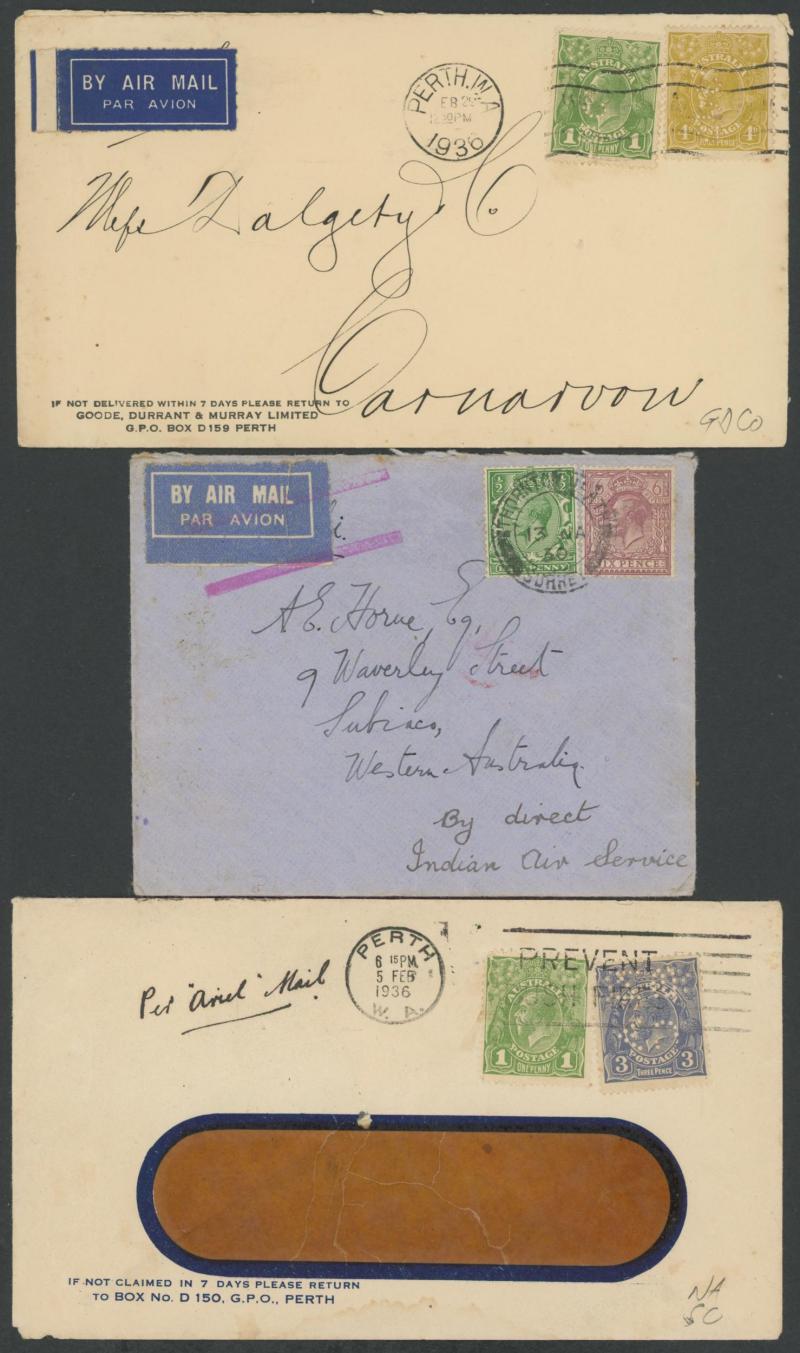 BY AIR MAIL
PAR AVION
PERTH. W.A
EB 26
1936
AUSTRALIA
1 POSTAGE 1
ONE PENNY
AUSTRALIA
4D POSTAGE 4D
Messrs Dalgety & Co
Carnarvon
IF NOT DELIVERED WITHIN 7 DAYS PLEASE RETURN TO
GOODE, DURRANT & MURRAY LIMITED
G.P.O. BOX D159 PERTH
GDCo
BY AIR MAIL
PAR AVION
½ ½
PENNY
THORNTON HEATH
13
30
SURREY
6D
SIX PENCE
A.E. Horne, Esq,
9 Waverley Street
Subiaco,
Western Australia.
By direct
Indian Air Service
PERTH
6 15PM
5 FEB
1936
W. A.
PREVENT
AUSTRALIA
1 POSTAGE 1
ONE PENNY
3 POSTAGE 3
THREE PENCE
Per "Ariel" Mail
IF NOT CLAIMED IN 7 DAYS PLEASE RETURN
TO BOX NO. D 150, G.P.O., PERTH